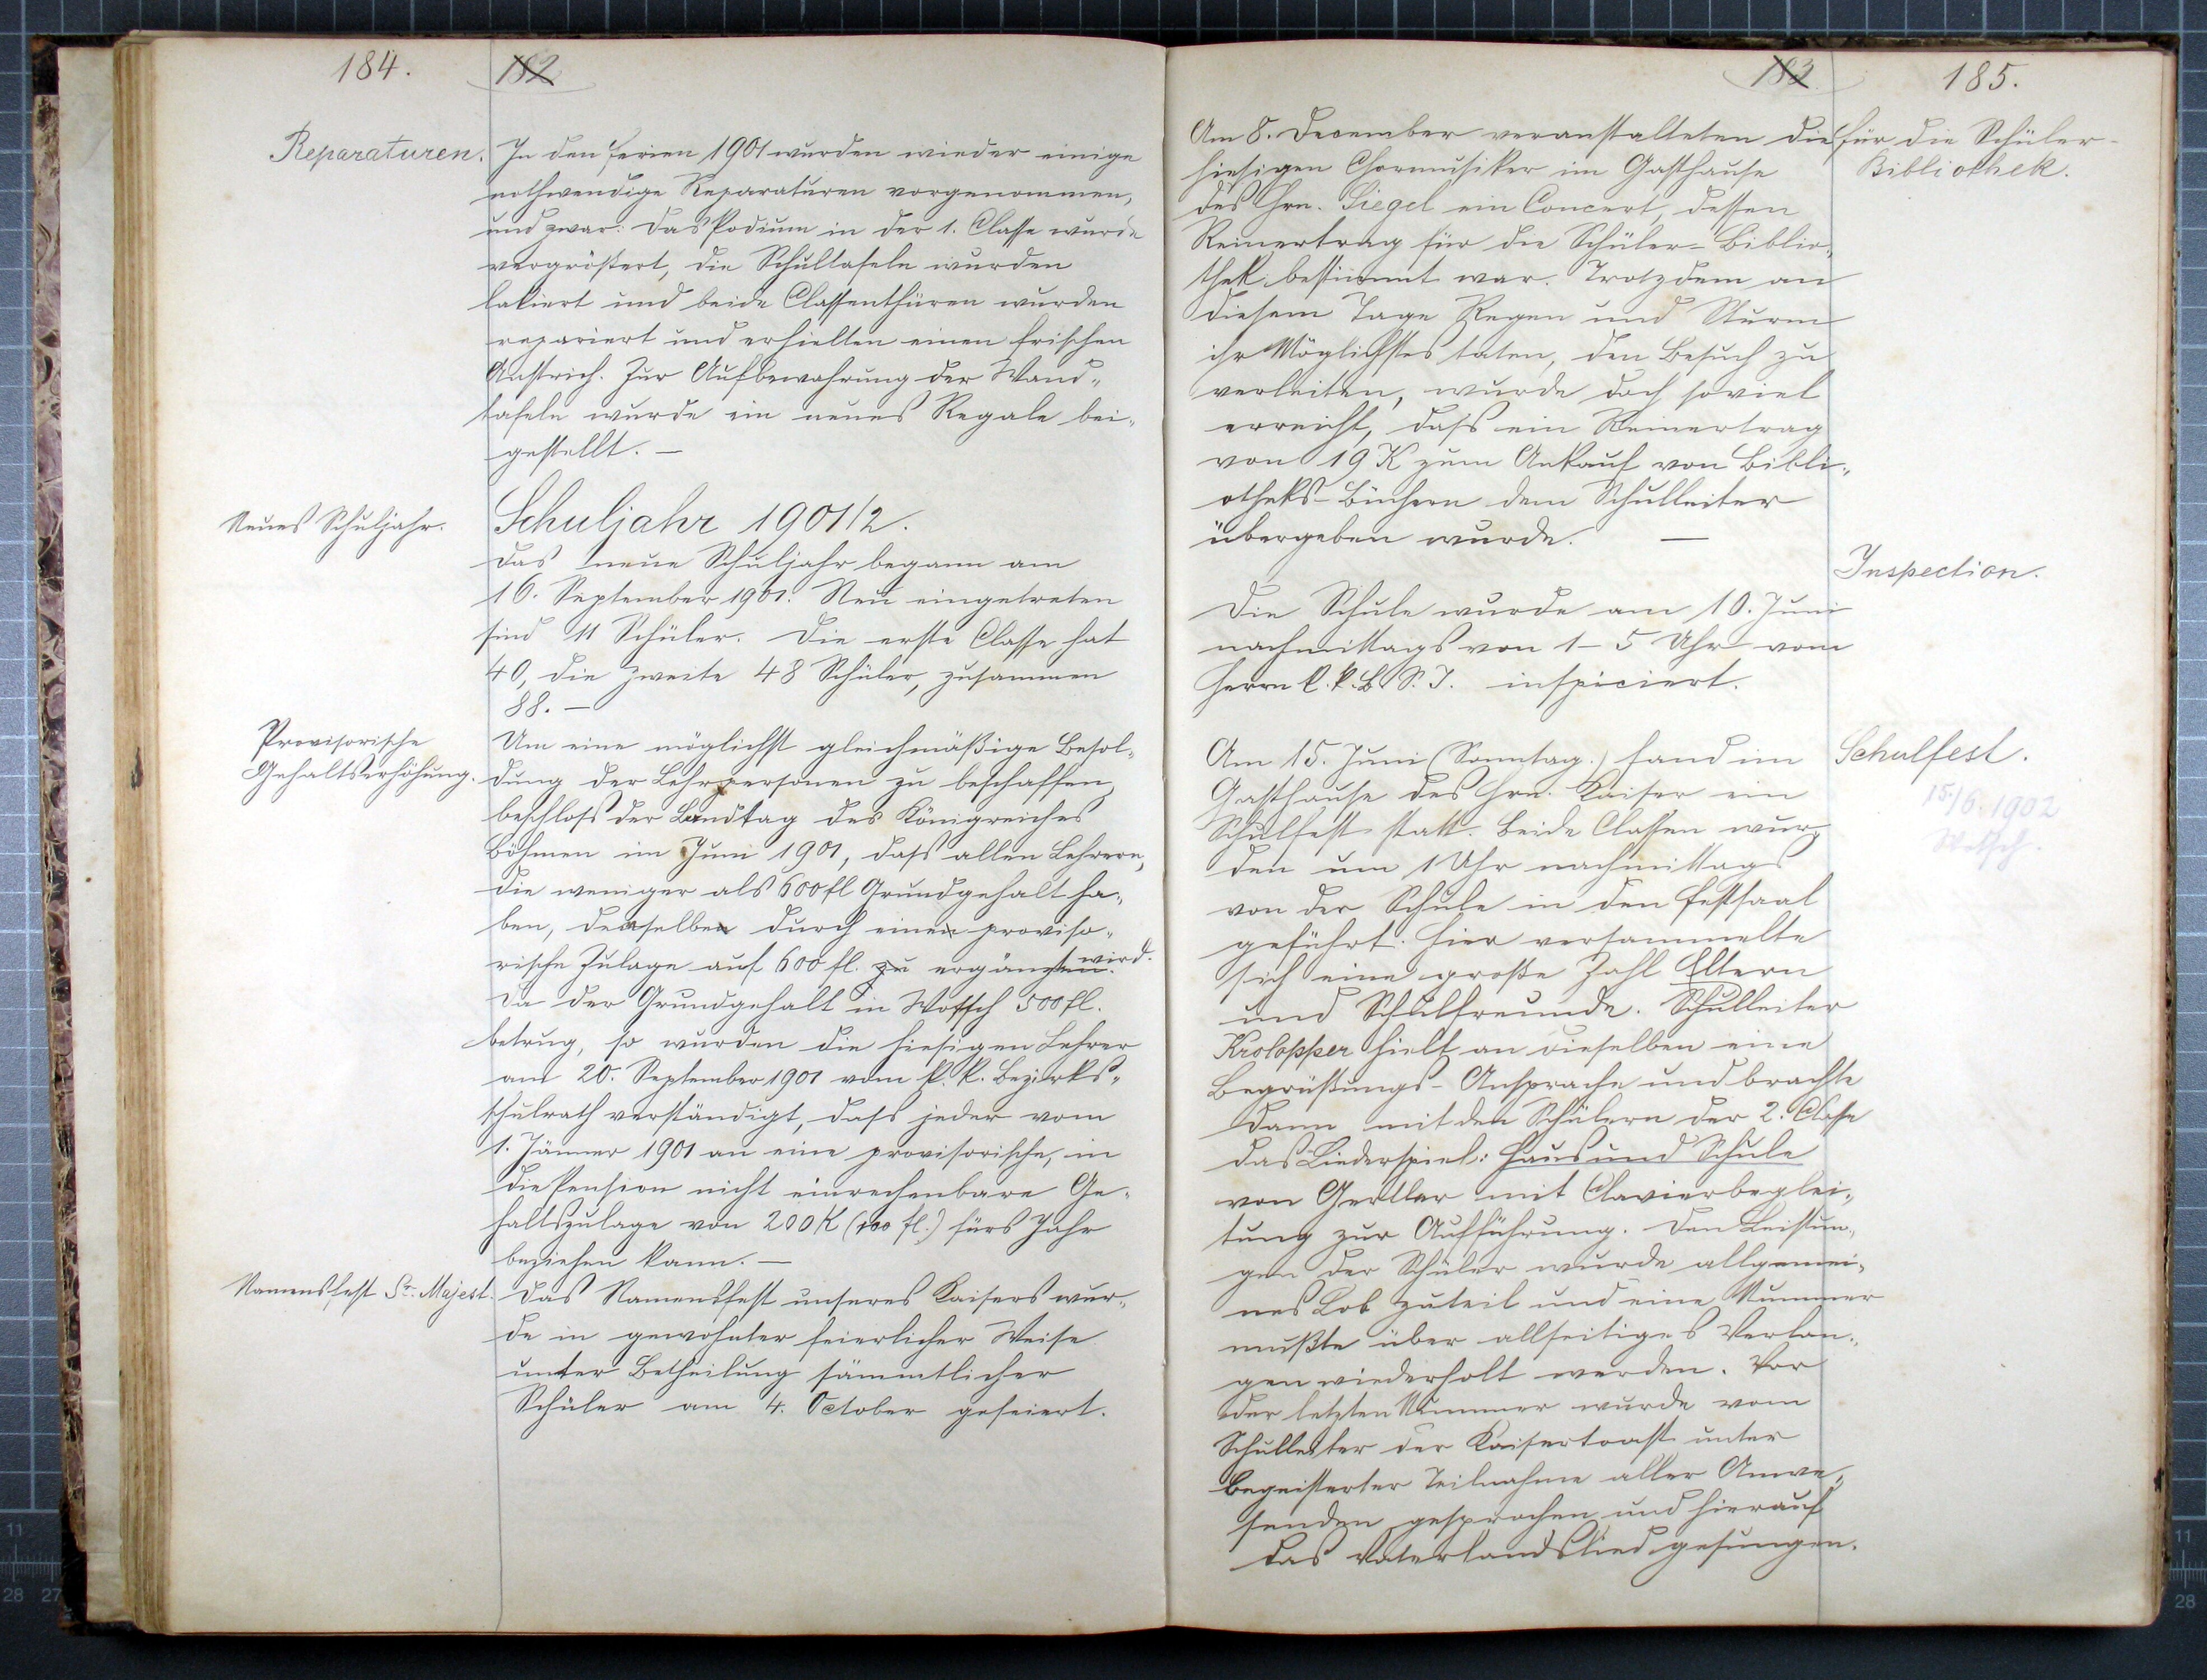 184.
182
Reparaturen.
In den Ferien 1901 wurden wieder einige
nothwendige Reparaturen vorgenommen,
und zwar: Das Podium in der 1. Classe wurde
vergrößert, die Schultafeln wurden
lakiert und beide Classenthüren wurden
repariert und erhielten einen frischen
Anstrich. Zur Aufbewahrung der Wand-
tafeln wurde ein neues Regale bei-
gestellt. —
Neues Schuljahr.
Schuljahr 1901/2.
Das neue Schuljahr begann am
16. September 1901. Neu eingetreten
sind 11 Schüler. Die erste Classe hat
40, die zweite 48 Schüler, zusammen
88. —
Provisorische
Gehaltserhöhung.
Um eine möglichst gleichmäßige Besol-
dung der Lehrpersonen zu beschaffen,
beschloss der Landtag des Königreiches
Böhmen im Juni 1901, dass allen Lehrern,
die weniger als 600 fl Grundgehalt ha-
ben, derselbe durch eine proviso-
rische Zulage auf 600 fl. zu ergänzt wird.
Da der Grundgehalt in Wottsch 500 fl.
betrug, so wurden die hiesigen Lehrer
am 20. September 1901 vom k. k. Bezirks-
schulrath verständigt, dass jeder vom
1. Jänner 1901 an eine provisorische, in
die Pension nicht einrechenbare Ge-
haltszulage von 200 K (100 fl.) fürs Jahr
beziehen kann. —
Namensfest Sr. Majest.
Das Namensfest unseres Kaisers wur-
de in gewohnter feierlicher Weise
unter Betheilung sämmtlicher
Schüler am 4. October gefeiert.
183
185.
Am 8. December veranstalteten die
hiesigen Chormusiker im Gasthause
des Hrn. Siegel ein Concert, dessen
Reinertrag für die Schüler-Biblio-
thek bestimmt war. Trotzdem an
diesem Tage Regen und Sturm
ihr Möglichstes taten, den Besuch zu
verleiten, wurde doch soviel
erreicht, dass ein Reinertrag
von 19 K zum Ankauf von Bibli-
otheks-Büchern dem Schulleiter
übergeben wurde. —
für die Schüler-
Bibliothek.
Inspection.
Die Schule wurde am 10. Juni
nachmittags von 1–5 Uhr vom
Herrn k. k. B. S. I. inspiciert.
Schulfest.
15./6. 1902
Am 15. Juni (Sonntag.) fand im
Gasthause des Hrn. Kaiser ein
Schulfest statt. Beide Classen wur-
den um 1 Uhr nachmittags
von der Schule in den Festsaal
geführt. Hier versammelte
sich eine große Zahl Eltern
und Schulfreunde. Schulleiter
Krolopper hielt an dieselben eine
Begrüßungs-Ansprache und brachte
dann mit den Schülern der 2. Classe
das Liederspiel: Haus und Schule
von Gerstler mit Clavierbeglei-
tung zur Aufführung. Den Leistun-
gen der Schüler wurde allgemei-
nes Lob zuteil und eine Nummer
mußte über allseitiges Verlan-
gen wiederholt werden. Vor
der letzten Nummer wurde vom
Schulleiter der Kaisertoast unter
begeisterter Teilnahme aller Anwe-
senden gesprochen und hierauf
das Vaterlandslied gesungen.
11
28 27
11
28